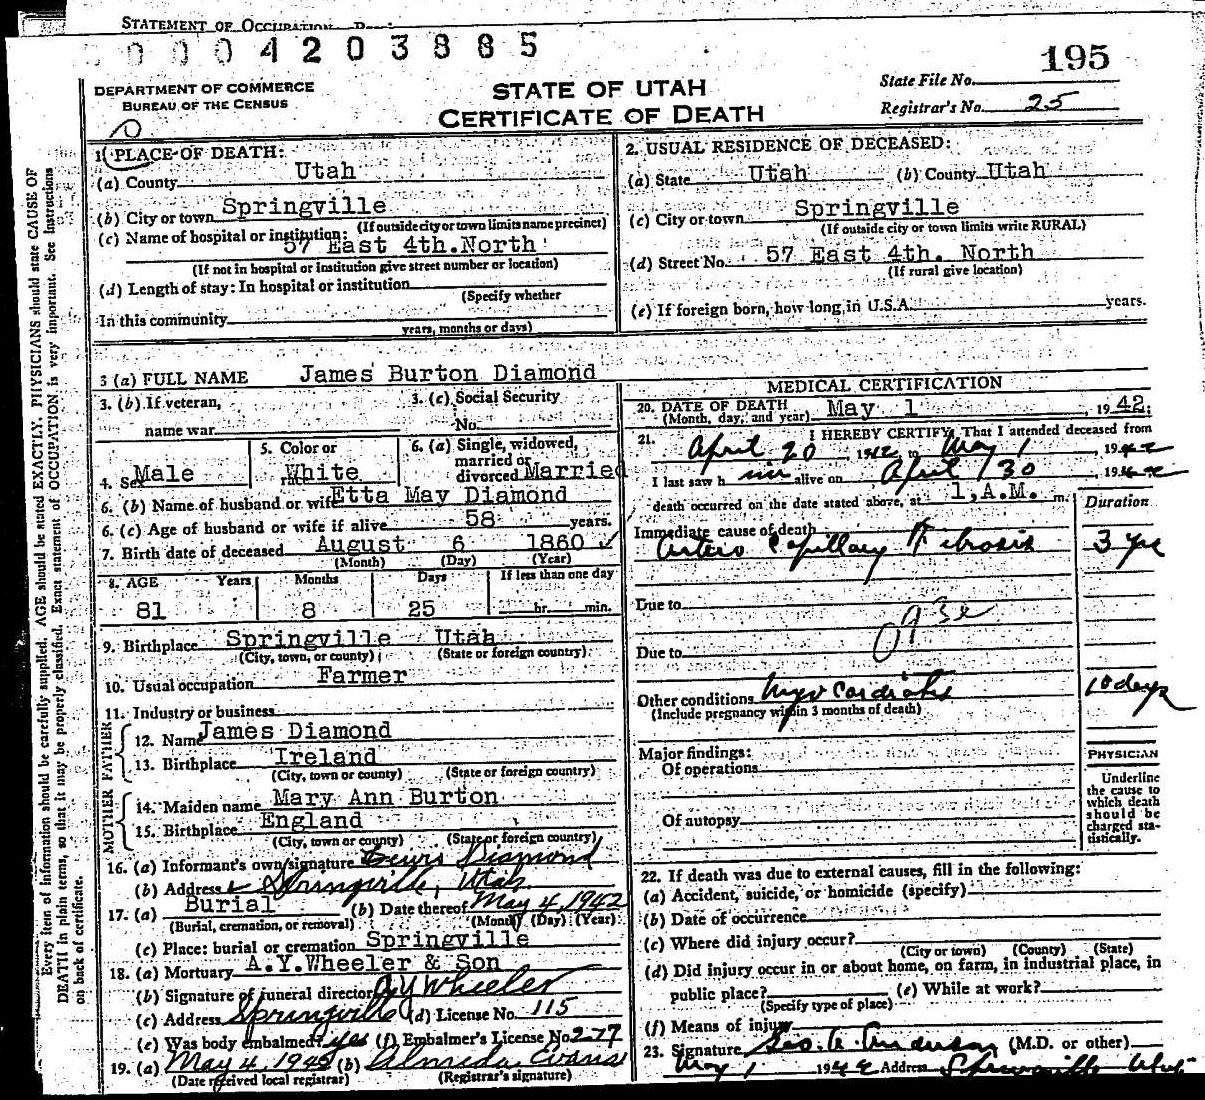 STATEMENT OF OCCUPATION
0004203885
195
DEPARTMENT OF COMMERCE
BUREAU OF THE CENSUS
STATE OF UTAH
CERTIFICATE OF DEATH
State File No.
Registrar's No. 25
1. PLACE OF DEATH:
(a) County Utah
(b) City or town Springville
(If outside city or town limits name precinct)
(c) Name of hospital or institution:
57 East 4th. North
(If not in hospital or institution give street number or location)
(d) Length of stay: In hospital or institution
(Specify whether
In this community
years, months or days)
2. USUAL RESIDENCE OF DECEASED:
(a) State Utah (b) County Utah
(c) City or town Springville
(If outside city or town limits write RURAL)
(d) Street No. 57 East 4th. North
(If rural give location)
(e) If foreign born, how long in U.S.A. years.
3 (a) FULL NAME James Burton Diamond
3. (b) If veteran,
name war
3. (c) Social Security
No.
4. Sex Male
5. Color or
race White
6. (a) Single, widowed,
married or
divorced Married
6. (b) Name of husband or wife Etta May Diamond
6. (c) Age of husband or wife if alive 58 years.
7. Birth date of deceased August 6 1860
(Month) (Day) (Year)
8. AGE Years Months Days If less than one day
81 8 25 hr. min.
9. Birthplace Springville Utah
(City, town, or county) (State or foreign country)
10. Usual occupation Farmer
11. Industry or business
FATHER
12. Name James Diamond
13. Birthplace Ireland
(City, town or county) (State or foreign country)
MOTHER
14. Maiden name Mary Ann Burton
15. Birthplace England
(City, town or county) (State or foreign country)
16. (a) Informant's own signature Lewis Diamond
(b) Address Springville, Utah
17. (a) Burial (b) Date thereof May 4, 1942
(Burial, cremation, or removal) (Month) (Day) (Year)
(c) Place: burial or cremation Springville
18. (a) Mortuary A.Y.Wheeler & Son
(b) Signature of funeral director A Y Wheeler
(c) Address Springville (d) License No. 115
(e) Was body embalmed? yes (f) Embalmer's License No 277
19. (a) May 4, 1942 (b) Almeda Evans
(Date received local registrar) (Registrar's signature)
MEDICAL CERTIFICATION
20. DATE OF DEATH May 1, 1942;
(Month, day, and year)
21. I HEREBY CERTIFY, That I attended deceased from
April 20 1942, to May 1, 1942
I last saw him alive on April 30 1942
death occurred on the date stated above, at 1, A.M. m.
Duration
Immediate cause of death
Arterio Capillary Fibrosis 3 yrs
Due to
Due to
Other conditions Myocarditis 10 days
(Include pregnancy within 3 months of death)
Major findings:
Of operations
Of autopsy
PHYSICIAN
Underline
the cause to
which death
should be
charged sta-
tistically.
22. If death was due to external causes, fill in the following:
(a) Accident, suicide, or homicide (specify)
(b) Date of occurrence
(c) Where did injury occur?
(City or town) (County) (State)
(d) Did injury occur in or about home, on farm, in industrial place, in
public place? (e) While at work?
(Specify type of place)
(f) Means of injury
23. Signature Geo. A. Anderson (M.D. or other)
May 1 1942 Address Springville Utah
Every item of information should be carefully supplied. AGE should be stated EXACTLY. PHYSICIANS should state CAUSE OF
DEATH in plain terms, so that it may be properly classified. Exact statement of OCCUPATION is very important. See Instructions
on back of certificate.